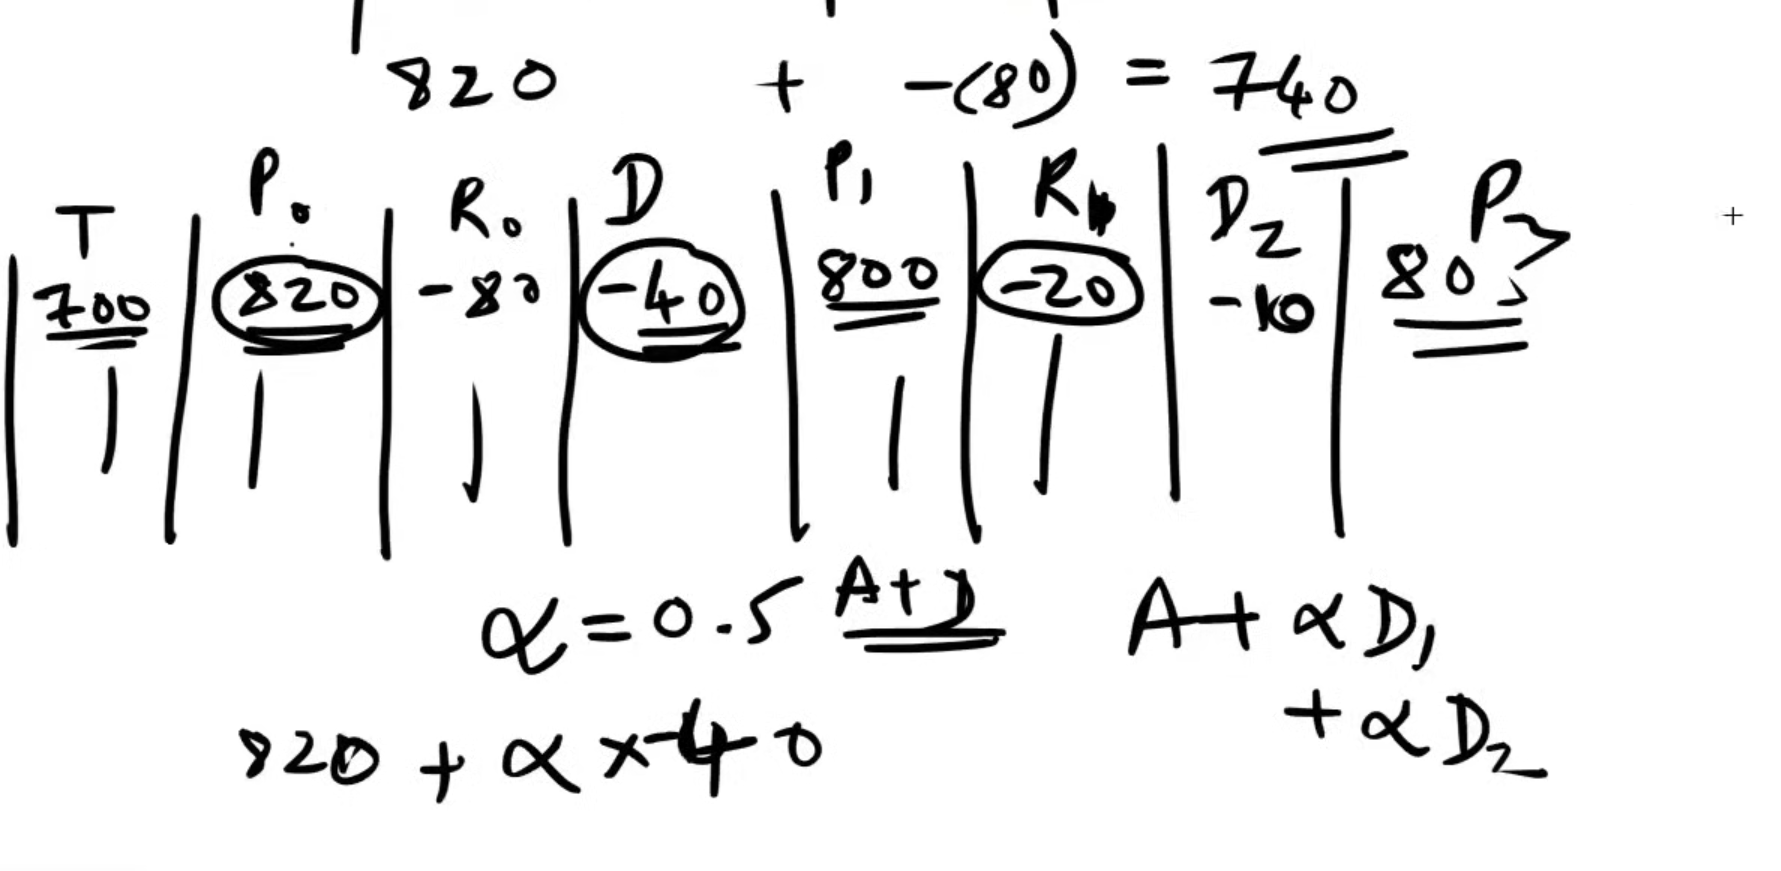 820 + -(80) = 740
T P₀ R₀ D P₁ R₁ D₂ P₂
700 820 -80 -40 800 -20 -10 80
α = 0.5 A+D A+ αD₁
+ αD₂
820 + α x-40